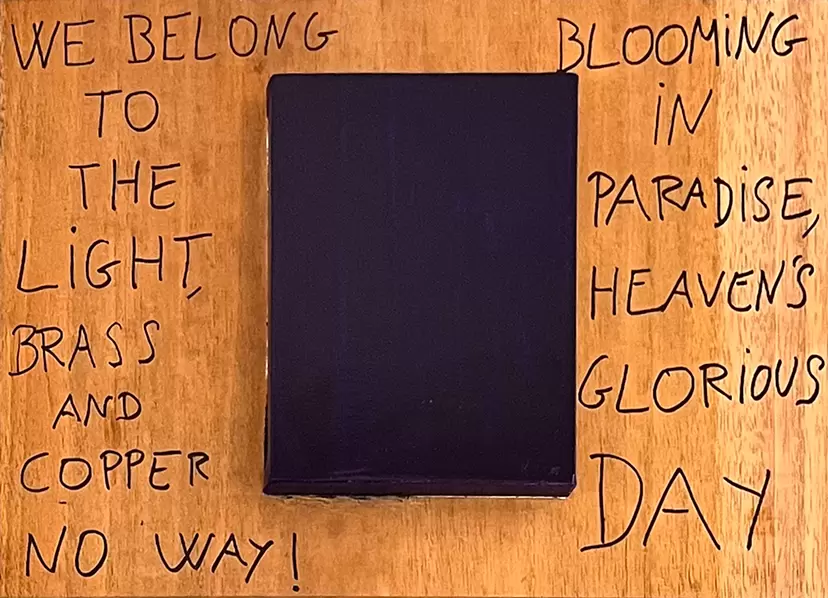 WE BELONG
TO
THE
LiGHT,
BRASS
AND
COPPER
NO WAY!
BLOOMiNG
iN
PARADiSE,
HEAVEN'S
GLORiOUS
DAY